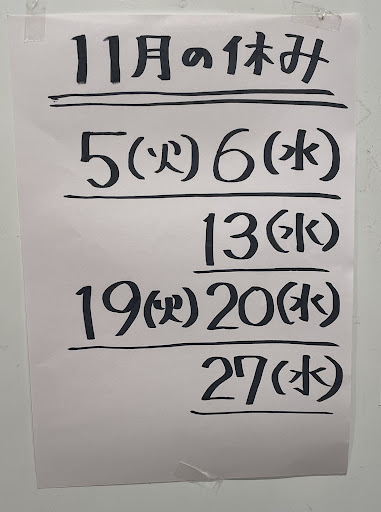 11月の休み
5(火) 6(水)
13(水)
19(火) 20(水)
27(水)